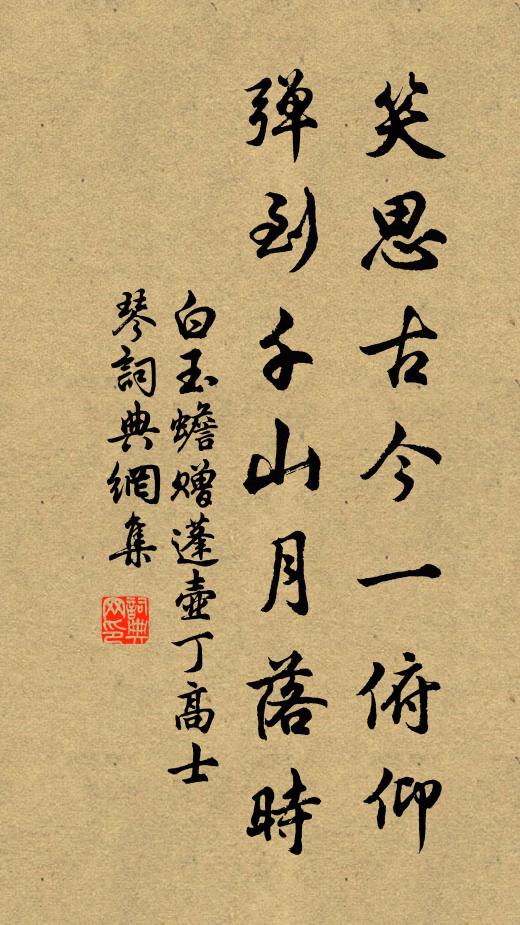 笑思古今一俯仰
弹到千山月落時
白玉蟾赠蓬壺丁高士
琴詞典網集
詞典网印